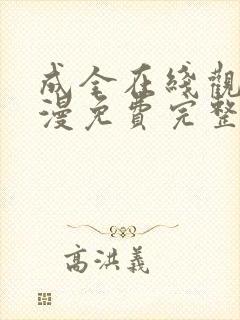 成全在綫觀
漫免費完整
高洪義